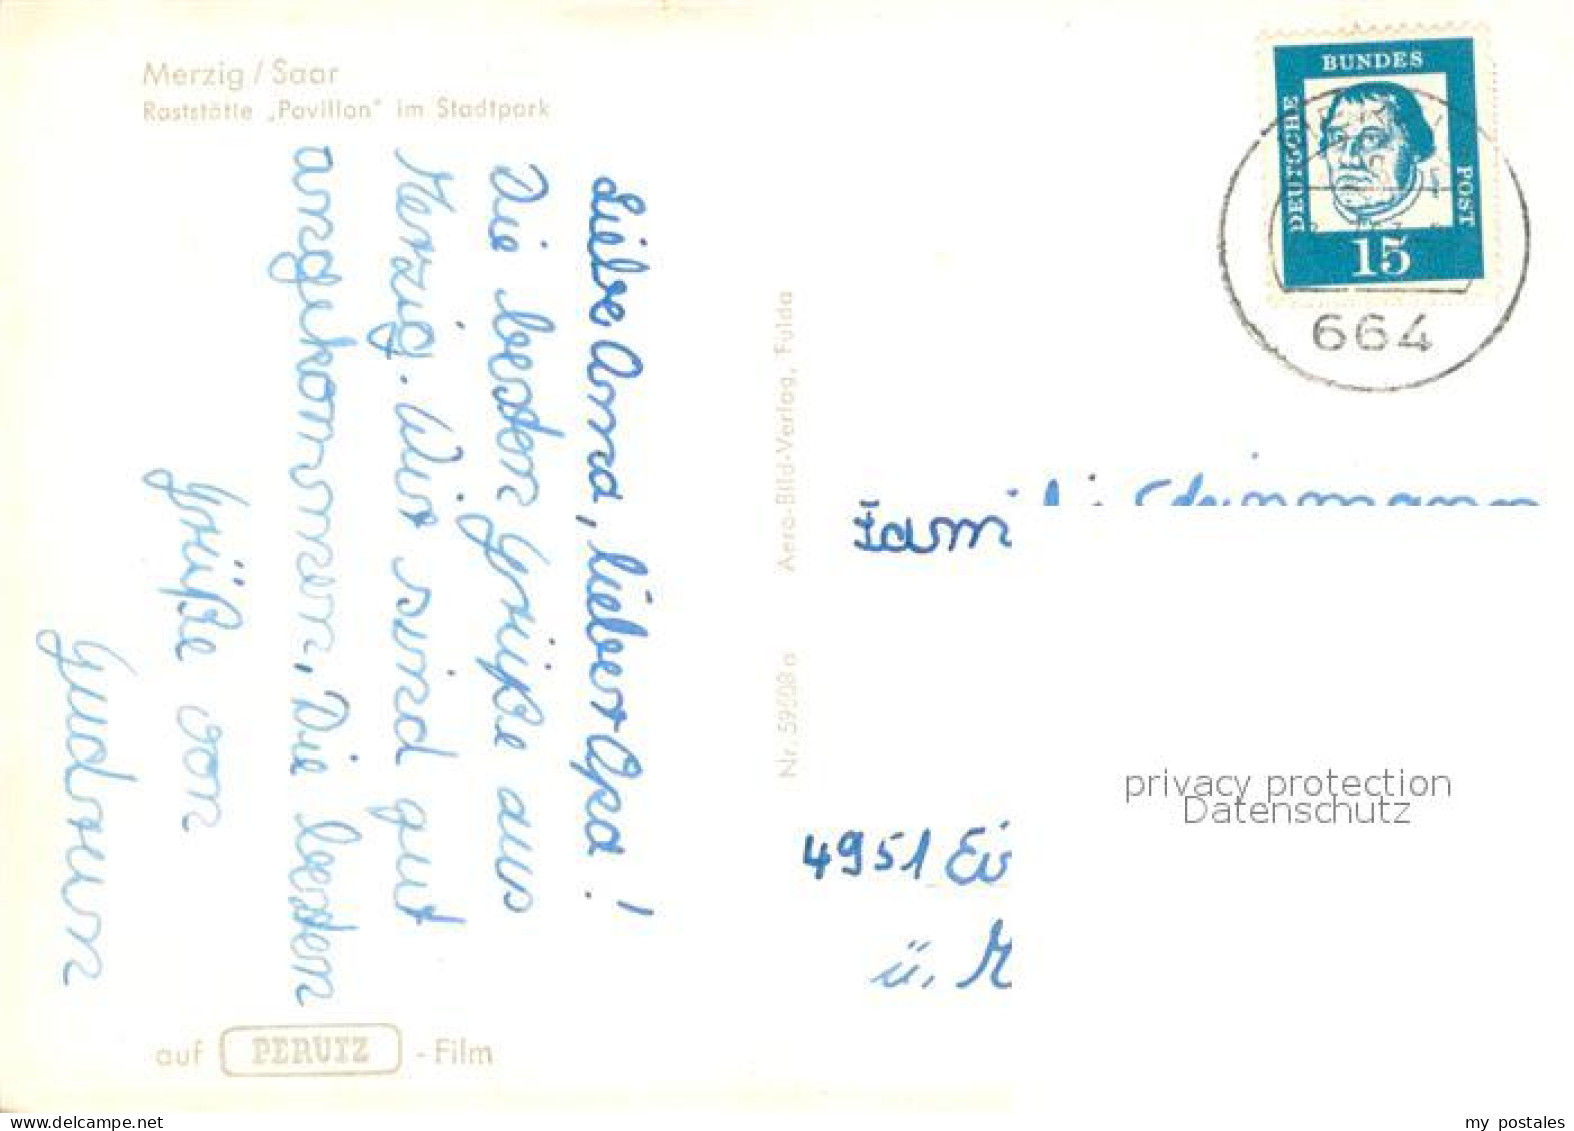 Merzig / Saar
Raststätte „Pavillon" im Stadtpark
Liebe Anna, lieber Opa !
Die besten Grüße aus
Merzig. Wir sind gut
angekommen. Die besten
Grüße von
Gudrun
auf PERUTZ - Film
Nr. 59508 a Aero-Bild-Verlag, Fulda
DEUTSCHE
BUNDES
POST
15
664
4951
ü.
privacy protection
Datenschutz
www.delcampe.net
my postales